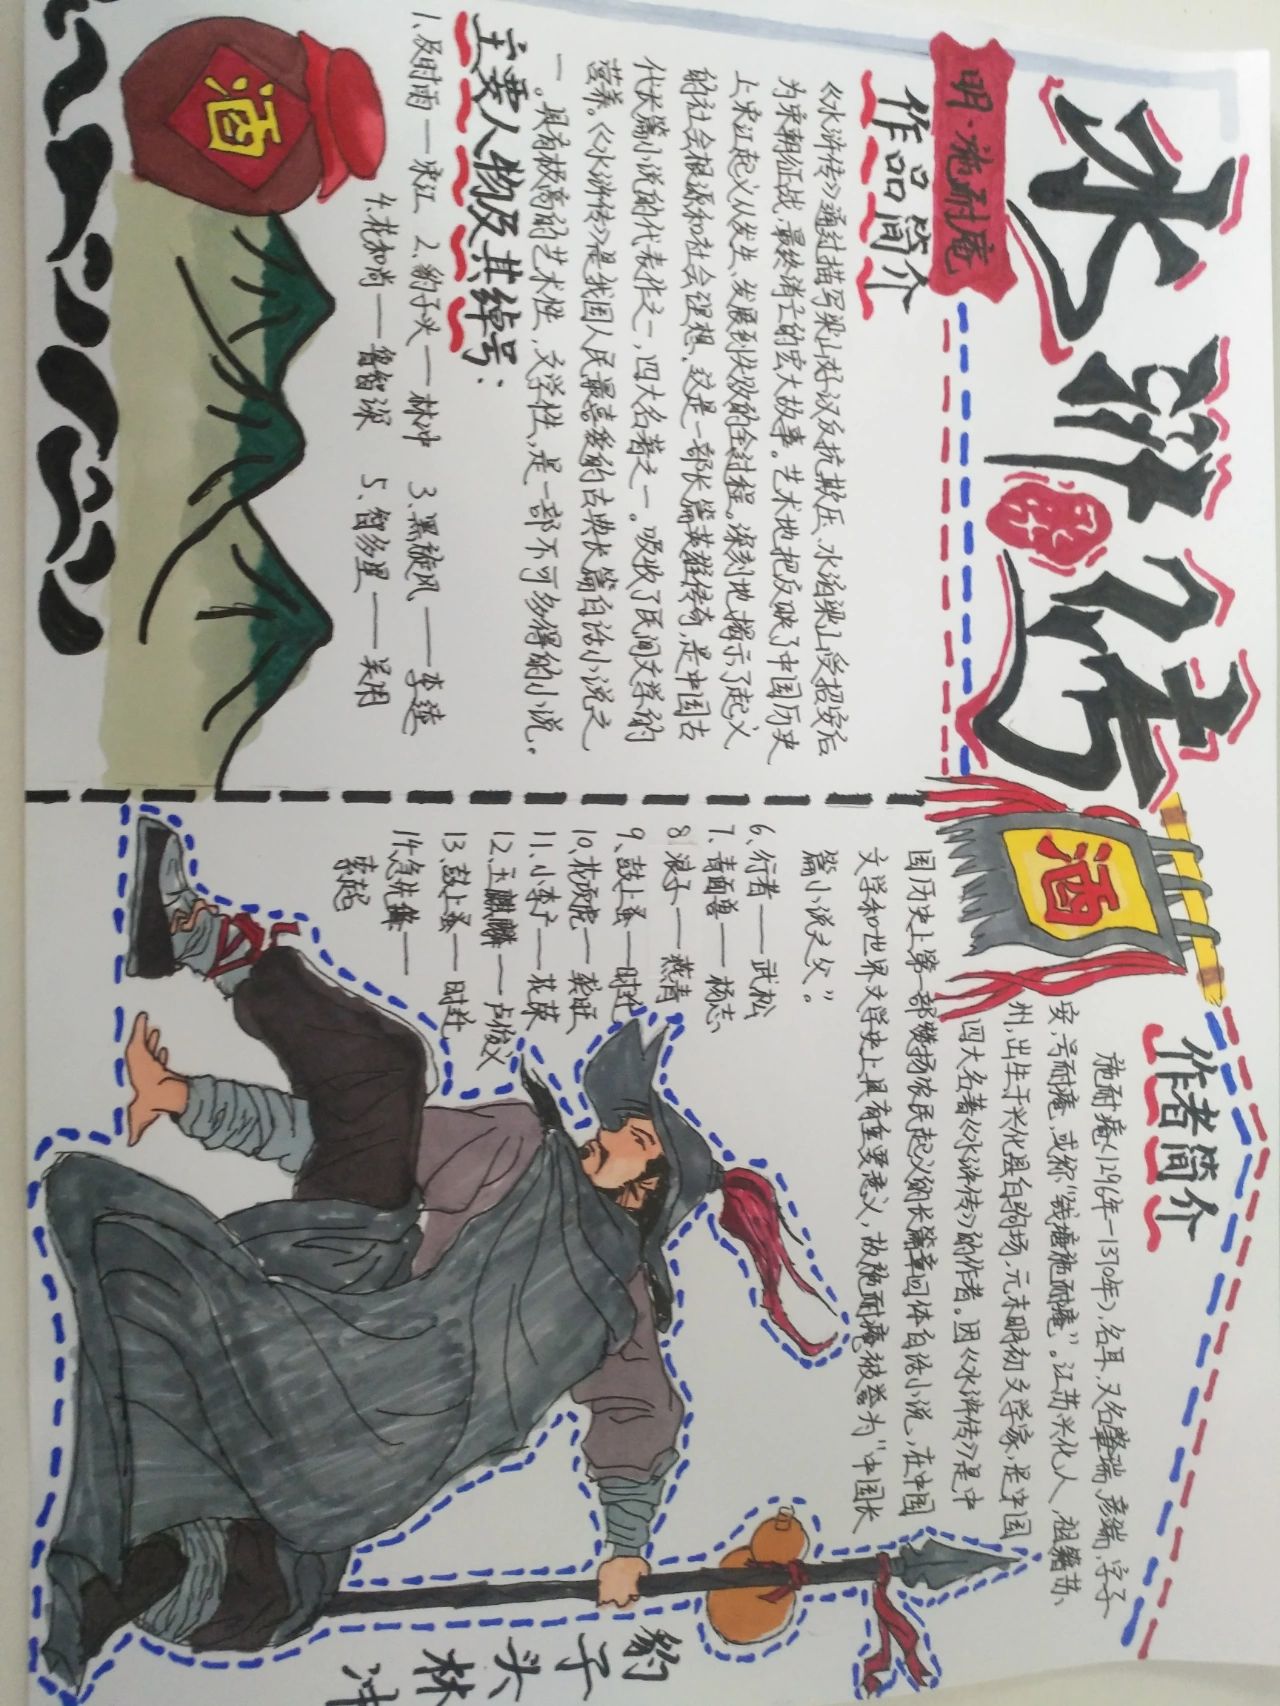 水浒传
明·施耐庵
作品简介
《水浒传》通过描写梁山好汉反抗欺压、水泊梁山受招安后
为宋朝征战,最终消亡的宏大故事。艺术地把反映了中国历史
上宋江起义从发生、发展到失败的全过程。深刻地揭示了起义
的社会根源和社会理想,这是一部长篇英雄传奇,是中国古
代长篇小说的代表作之一,四大名著之一。吸收了民间文学的
营养。《水浒传》是我国人民最喜爱的古典长篇白话小说之
一。具有极高的艺术性,文学性,是一部不可多得的小说。
主要人物及其绰号:
1、及时雨——宋江 2、豹子头——林冲 3、黑旋风——李逵
4.花和尚——鲁智深 5、智多星——吴用
酒
酒
作者简介
施耐庵(1296年-1370年),名耳,又名肇瑞,彦端,字子
安,号耐庵,或称"钱塘施耐庵"。江苏兴化人,祖籍苏
州,出生于兴化县白驹场,元末明初文学家,是中国
四大名著《水浒传》的作者。因《水浒传》是中
国历史上第一部赞扬农民起义的长篇章回体白话小说、在中国
文学和世界文学史上具有重要意义,故施耐庵被誉为"中国长
篇小说之父"。
6、行者——武松
7、青面兽——杨志
8浪子——燕青
9、鼓上蚤—时迁
10、花项虎—龚旺
11、小李广—花荣
12、玉麒麟——卢俊义
13、鼓上蚤——时迁
14.急先锋——
索超
豹子头林冲